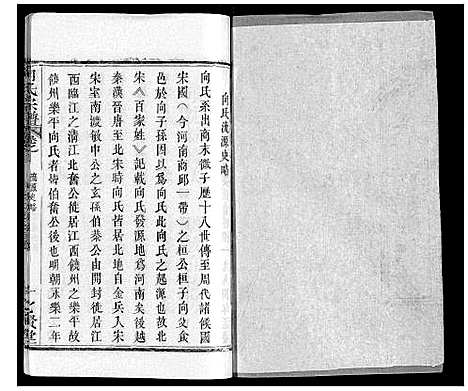 向氏流源史略
向氏系出商末微子歷十八世傳至周代諸侯國
宋國(今河南商邱一帶)之桓公桓公子向父食
邑於向子孫因以向為氏此向氏之起源也故北
宋《百家姓》記載向氏發源地為河南矣後越
秦漢晉唐至北宋時向氏皆居北地自金兵入宋
宋室南渡敏中公之玄孫伯奮公由開封徙居江
西臨江之清江北奮公徙居江西饒州之樂平故
饒州樂平向氏者均伯奮公後也明朝永樂二年
向氏宗譜 卷之
流源史略